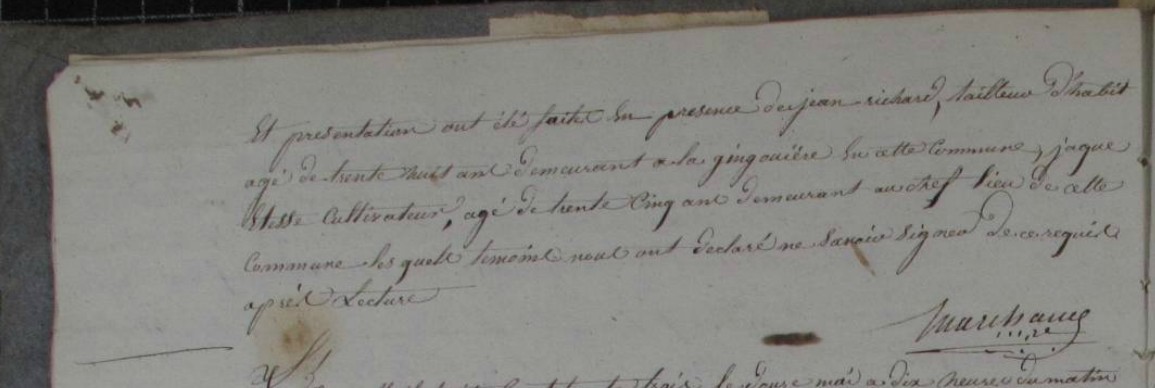 Et presentation ont été faite En presence de jean richard, tailleur D'habit
agé de trente huit ans demeurant a la gingouiére En cette Commune, jaque
cultivateur, agé de trente Cinq ans demeurant au chef lieu de cette
Commune les quels temoins nous ont declaré ne Savoir Signer De ce requis
aprés Lecture
Marchand
trois le douze mai a dix heures du matin